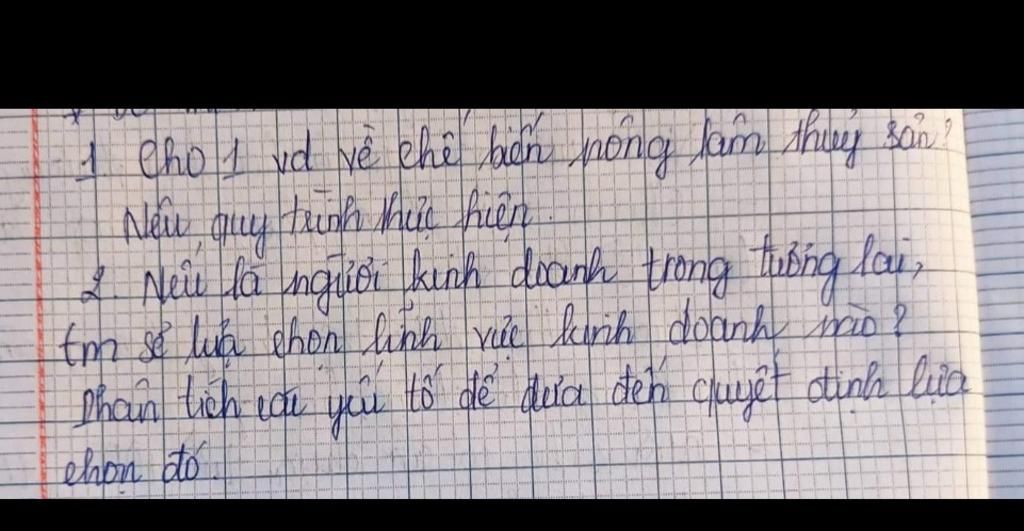 1 Cho 1 vd về chế biến nông lâm thuỷ sản?
Nêu quy trình thực hiện.
2. Nếu là người kinh doanh trong tương lai,
Em sẽ lựa chọn lĩnh vực kinh doanh nào?
Phân tích các yếu tố để đưa đến quyết định lựa
chọn đó.